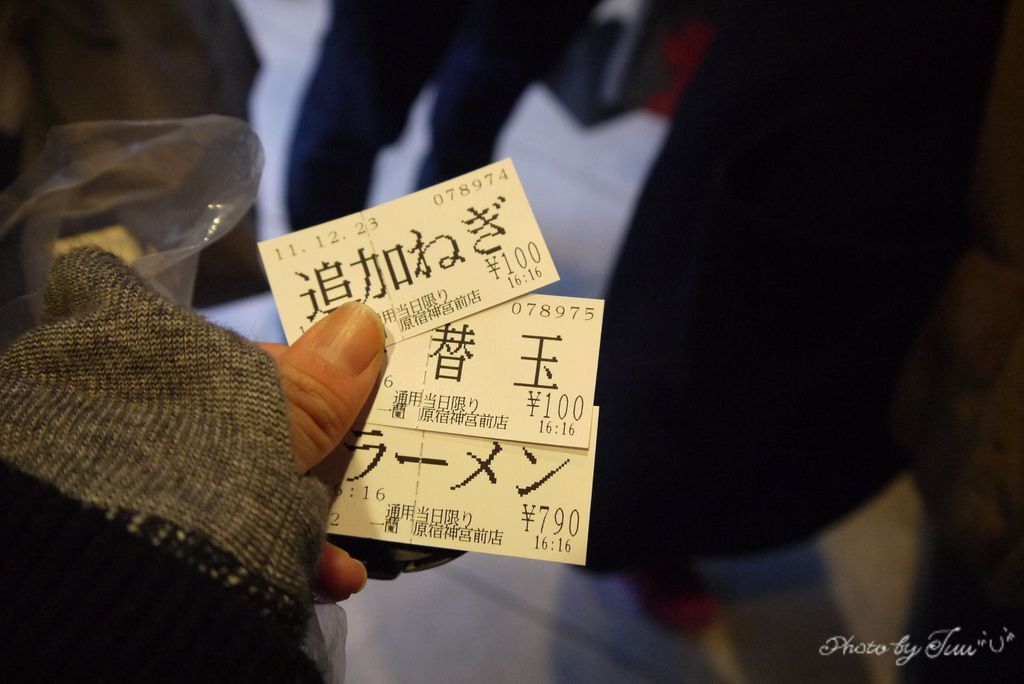 078974
11. 12. 23
追加ねぎ
¥100
用当日限り 16:16
原宿神宮前店
078975
替 玉
6 ¥100
通用当日限り 16:16
一蘭 原宿神宮前店
ラーメン
:16 ¥790
通用当日限り 16:16
2 一蘭 原宿神宮前店
Photo by Tuu